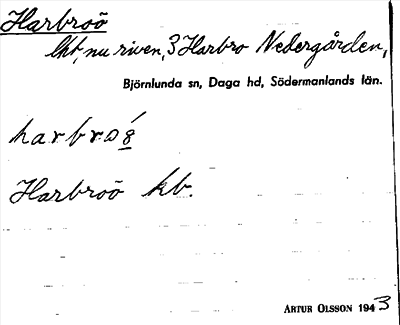 Harbroö
lht, nu riven, 3 Harbro Nedergården,
Björnlunda sn, Daga hd, Södermanlands län.
harbro
Harbroö kb.
ARTUR OLSSON 1943